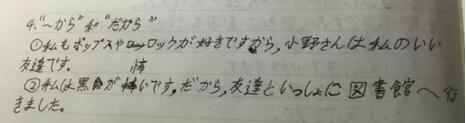 4. "～から" 和 "だから"
①私もポップスやロックが好きですから, 小野さんは私のいい
友達です。 怖
②私は黒が怖いです, だから, 友達といっしょに図書館へ行
きました。